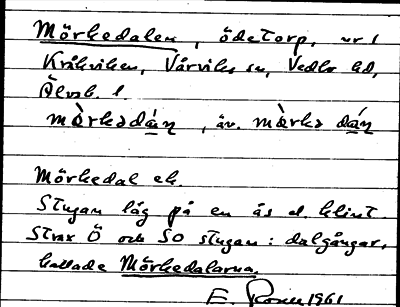 Mörkedalen, ödetorp, nr 1
Kråkviken, Vårviks sn, Vedbo hd,
Älvsb. l.
mὰrkədán, äv. mὰrkə dán
Mörkedal ek.
Stugan låg på en ås el. klint.
Strax Ö och SO stugan: dalgångar,
kallade Mörkedalarna.
E. 1961